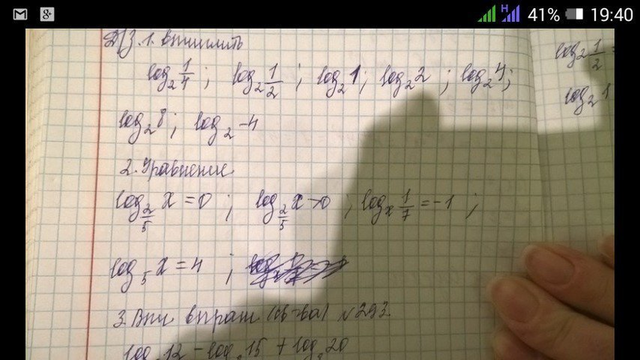 41% 19:40
Д/З. 1. Вычислить
log₂ 1/4 ; log₂ 1/2 ; log₂ 1 ; log₂ 2 ; log₂ 4 ;
log₂ 8 ; log₂ -4
2. Уравнение
log_{2/5} x = 0 ; log_{2/5} x → 0 ; log_x 1/7 = -1 ;
log₅ x = 4 ;
3. №293.
log 12 - log 15 + log 20
log₂ 1/2 =
log₂ 1